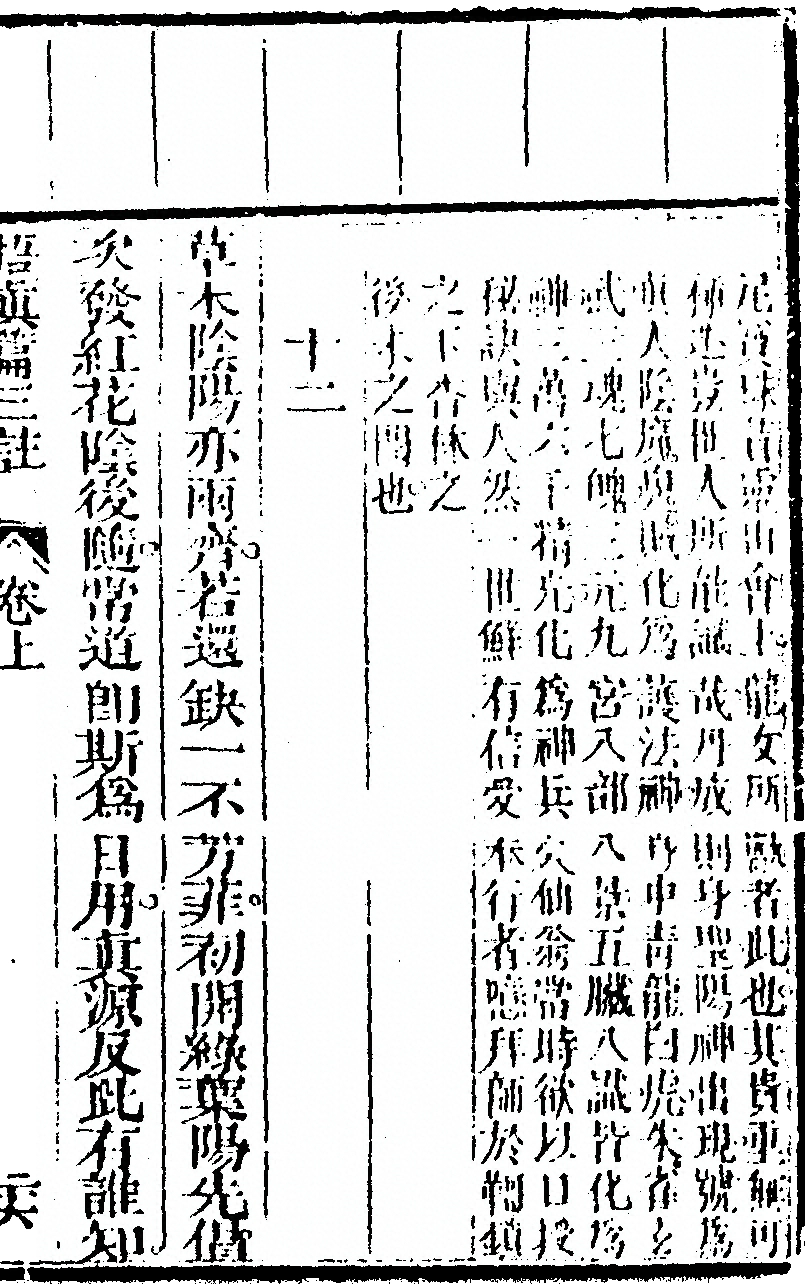 尼後味昔靈山會上龍女所獻者此也其貴重無可
極也豈世人所能識哉丹成則身聖陽神出現號爲
眞人陰魔鬼賊化爲護法神身中靑龍白虎朱雀玄
武三魂七魄三元九宮八部八景五臟八識皆化爲
神三萬六千精光化爲神兵矣仙翁當時欲以口授
秘訣與人然一世鮮有信受奉行者噫拜師於鞫鎖
之下杏林之
後未之聞也
十二
草木陰陽亦兩齊若還缺一不芳菲初開綠葉陽先倡
次發紅花陰後隨常道卽斯爲日用眞源反此有誰知
悟眞篇三註 卷上 二六